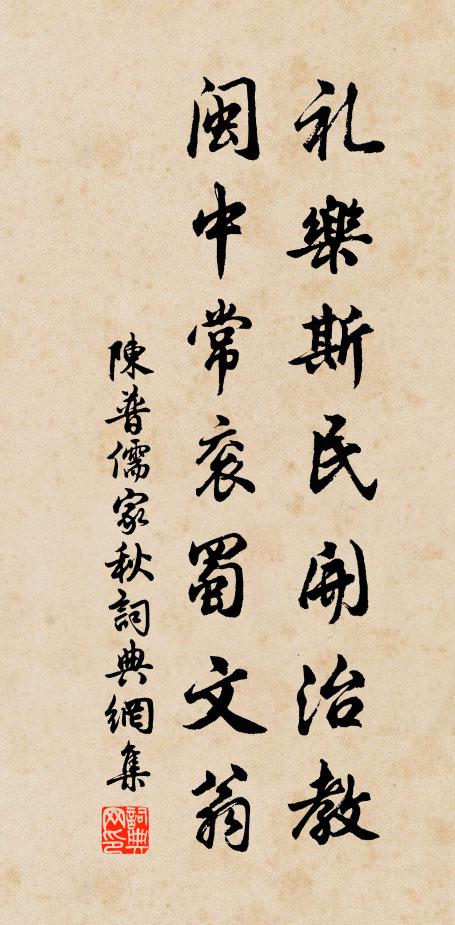 礼樂斯民開治教
閩中常衮蜀文翁
陳普儒家秋詞典網集
詞典網印